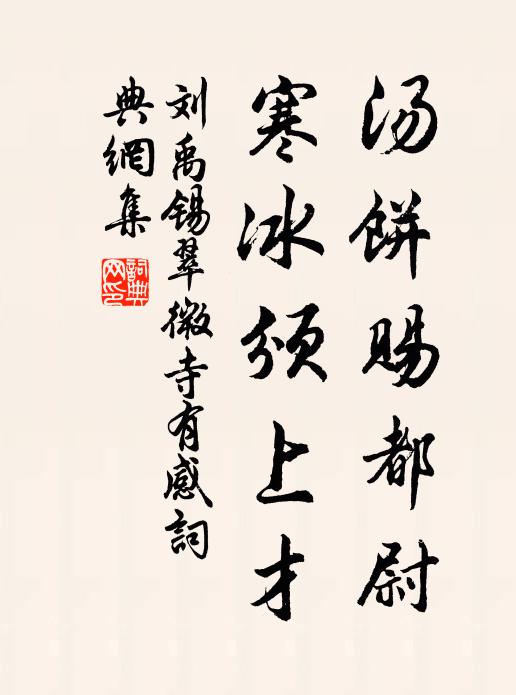 汤饼赐都尉
寒冰颁上才
刘禹锡翠微寺有感词
典網集
詞典网印